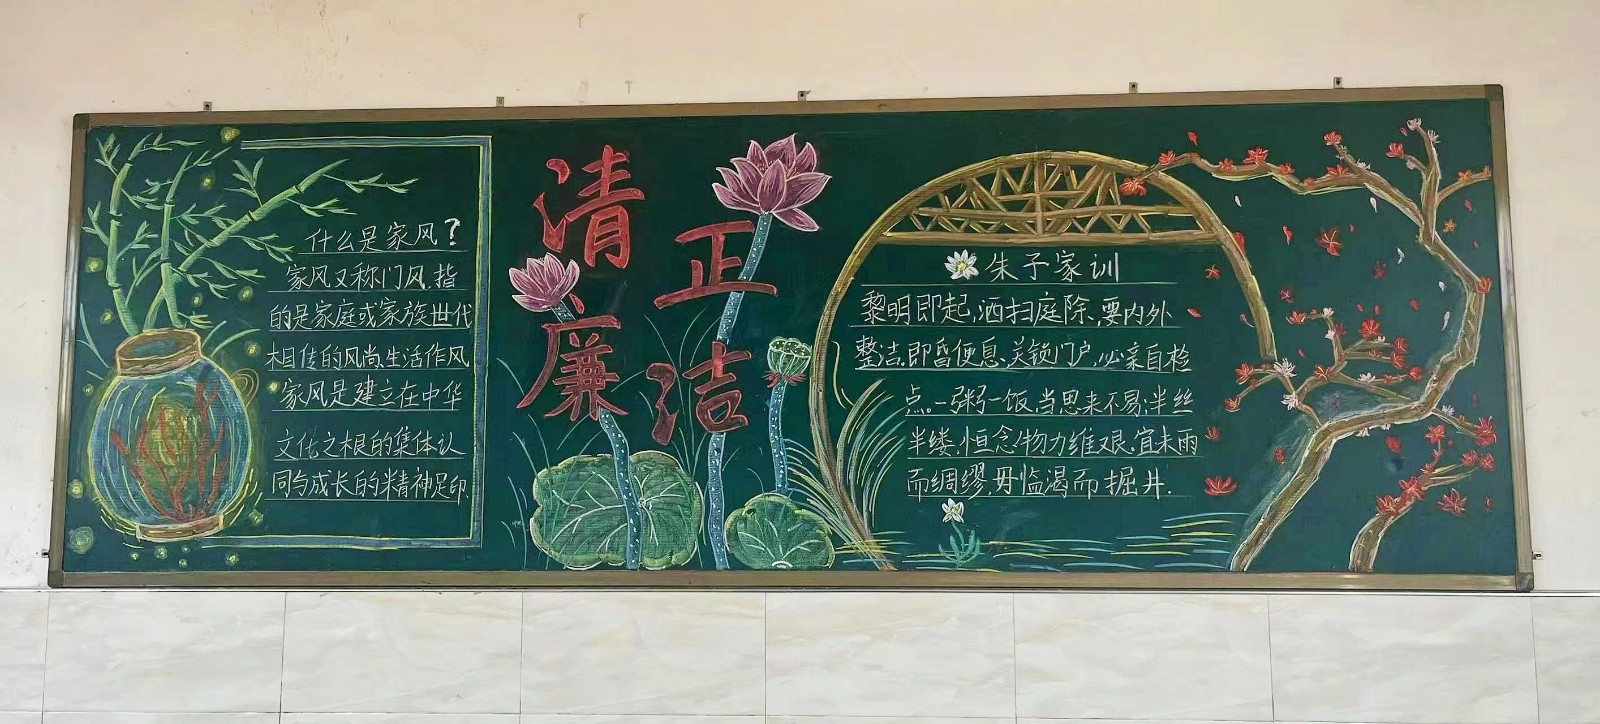 什么是家风?
家风又称门风,指
的是家庭或家族世代
相传的风尚,生活作风
家风是建立在中华
文化之根的集体认
同与成长的精神足印.
清
廉
正
洁
朱子家训
黎明即起,洒扫庭除,要内外
整洁.即昏便息,关锁门户,必亲自检
点。一粥一饭,当思来不易;半丝
半缕,恒念物力维艰.宜未雨
而绸缪,毋临渴而掘井.